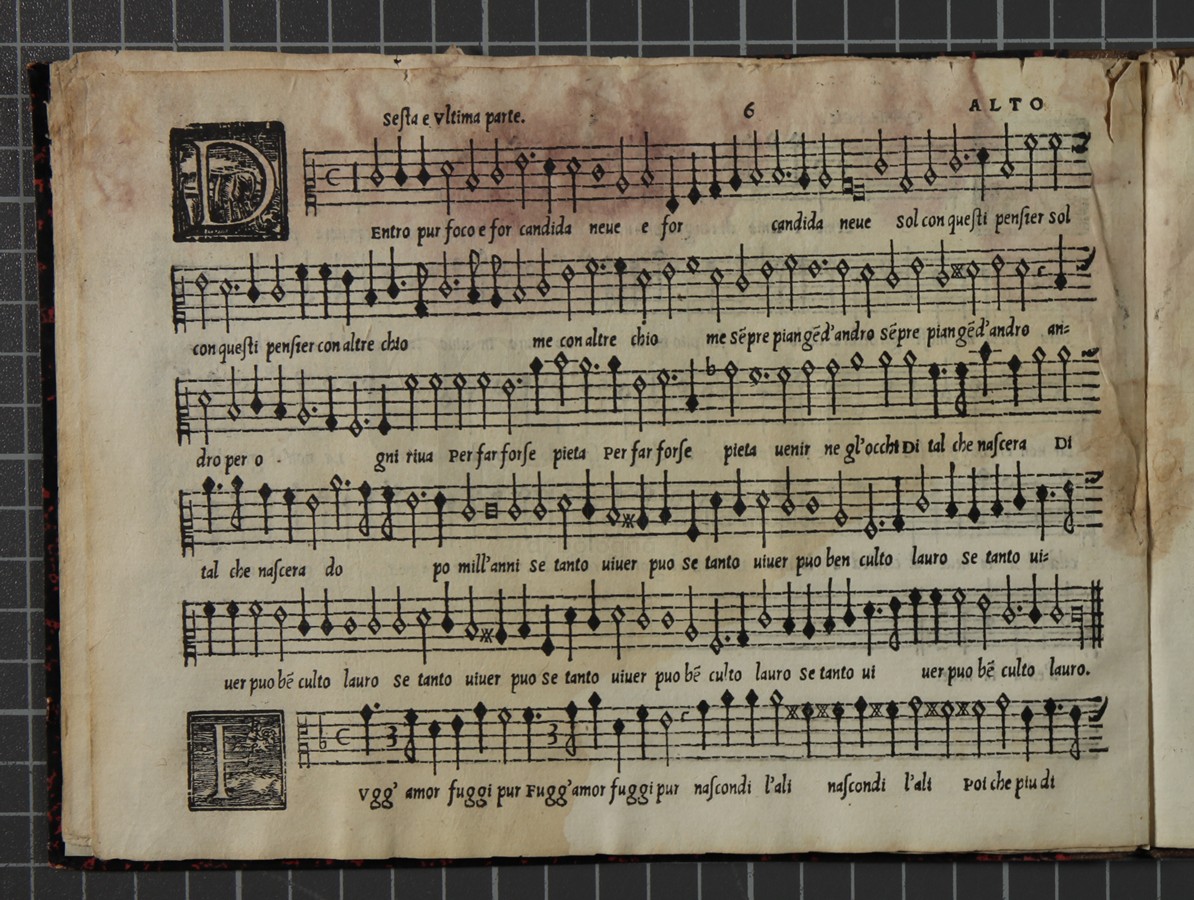 Sesta e Vltima parte. 6 ALTO
DEntro pur foco e for candida neue e for candida neue Sol con questi pensier sol
con questi pensier con altre chio me con altre chio me sẽpre piangẽd'andro sẽpre piangẽd'andro an=
dro per o gni riua Per far forse pieta Per far forse pieta uenir ne gl'occhi Di tal che nascera Di
tal che nascera do po mill'anni Se tanto uiuer puo Se tanto uiuer puo ben culto lauro Se tanto ui=
uer puo bẽ culto lauro Se tanto uiuer puo Se tanto uiuer puo bẽ culto lauro Se tanto ui uer puo bẽ culto lauro.
FVgg' amor fuggi pur Fugg'amor fuggi pur nascondi l'ali nascondi l'ali Poi che piu di